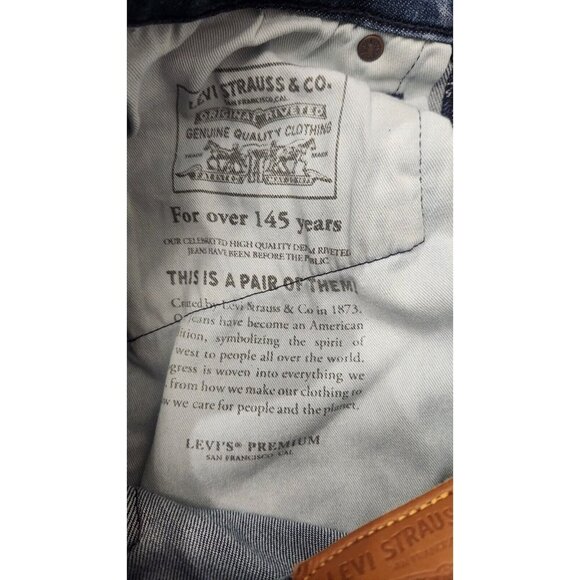 LEVI STRAUSS & CO.
SAN FRANCISCO, CAL.
ORIGINAL RIVETED
GENUINE QUALITY CLOTHING
TRADE MARK
For over 145 years
OUR CELEBRATED HIGH QUALITY DENIM RIVETED
JEANS HAVE BEEN BEFORE THE PUBLIC
THIS IS A PAIR OF THEM!
Created by Levi Strauss & Co in 1873.
jeans have become an American
symbolizing the spirit of
west to people all over the world.
gress is woven into everything we
from how we make our clothing to
w we care for people and the planet.
LEVI'S® PREMIUM
SAN FRANCISCO CAL
LEVI STRAUSS